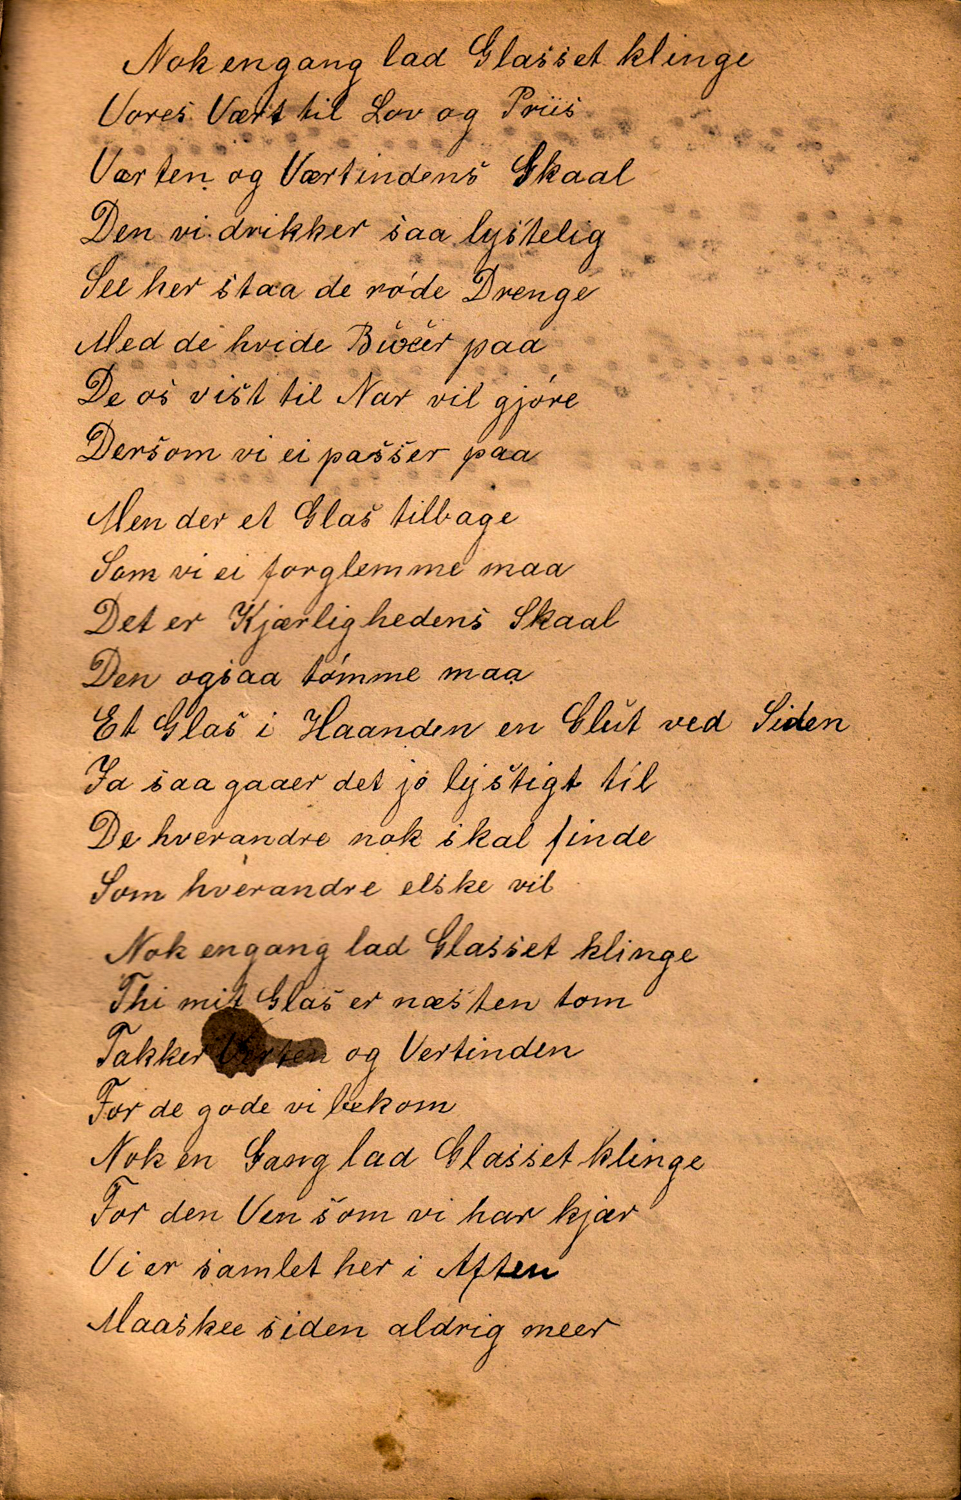 Nok engang lad Glasset klinge
Vores Vært til Lov og Priis
Værten og Værtindens Skaal
Den vi drikker saa lystelig
See her staa de røde Drenge
Med de hvide Buxer paa
De os vist til Nar vil gjøre
Dersom vi ei passer paa
Men der et Glas tilbage
Som vi ei forglemme maa
Det er Kjærlighedens Skaal
Den ogsaa tømme maa
Et Glas i Haanden en Glut ved Siden
Ja saa gaaer det jo lystigt til
De hverandre nok skal finde
Som hverandre elske vil
Nok engang lad Glasset klinge
Thi mit Glas er næsten tom
Takker Verten og Vertinden
For de gode vi bekom
Nok en Gang lad Glasset klinge
For den Ven som vi har kjær
Vi er samlet her i Aften
Maaskee siden aldrig meer